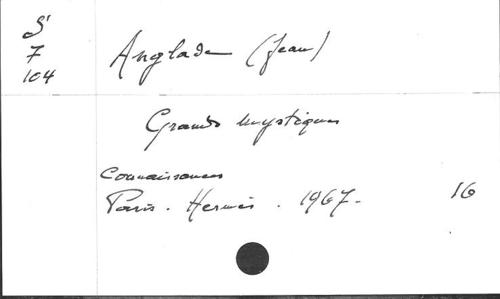 S'
7
104
Anglade (Jean)
Grands mystiques
Connaissances
Paris. Hermès. 1967.
16